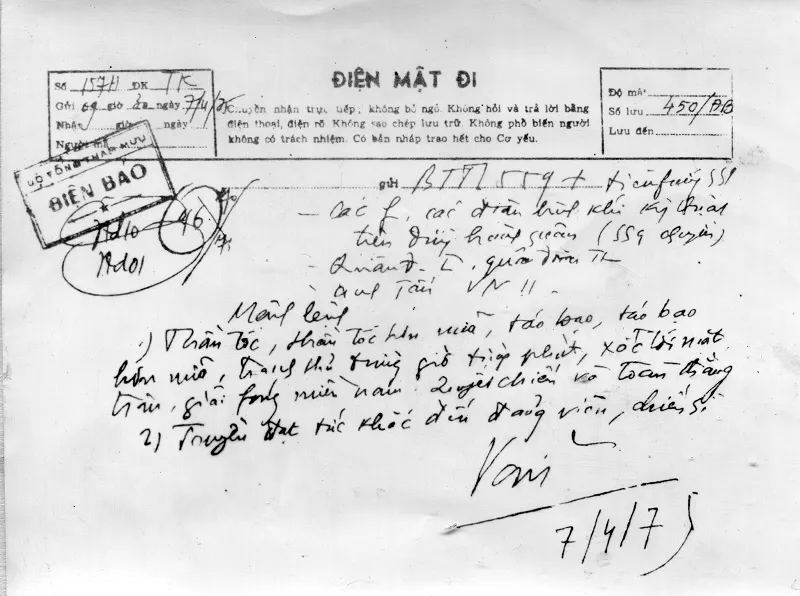 ĐIỆN MẬT ĐI
Số 157/1 ĐK TK
Gửi 09 giờ ngày 7/4/75
Nhận giờ ngày
Người mã
Chuyển nhận trực tiếp, không bỏ ngỏ. Không hỏi và trả lời bằng
điện thoại, điện rõ. Không sao chép lưu trữ. Không phổ biến người
không có trách nhiệm. Có bản nháp trao hết cho Cơ yếu.
Độ mật
Số lưu 450/ĐB
Lưu đến
BỘ TỔNG THAM MƯU
ĐIỆN BÁO
46
Ad10
Ad01
gửi BTTL 559 +
- các f, các đoàn binh khí kỹ thuật
(559 chuyển)
VN !!
Mệnh lệnh
1) Thần tốc, thần tốc hơn nữa, táo bạo, táo bạo
hơn nữa, tranh thủ từng giờ từng phút, xốc tới mặt
trận, giải fóng miền nam. Quyết chiến và toàn thắng
2) Truyền đạt tức khắc đến đảng viên, chiến sĩ
Văn
7/4/75